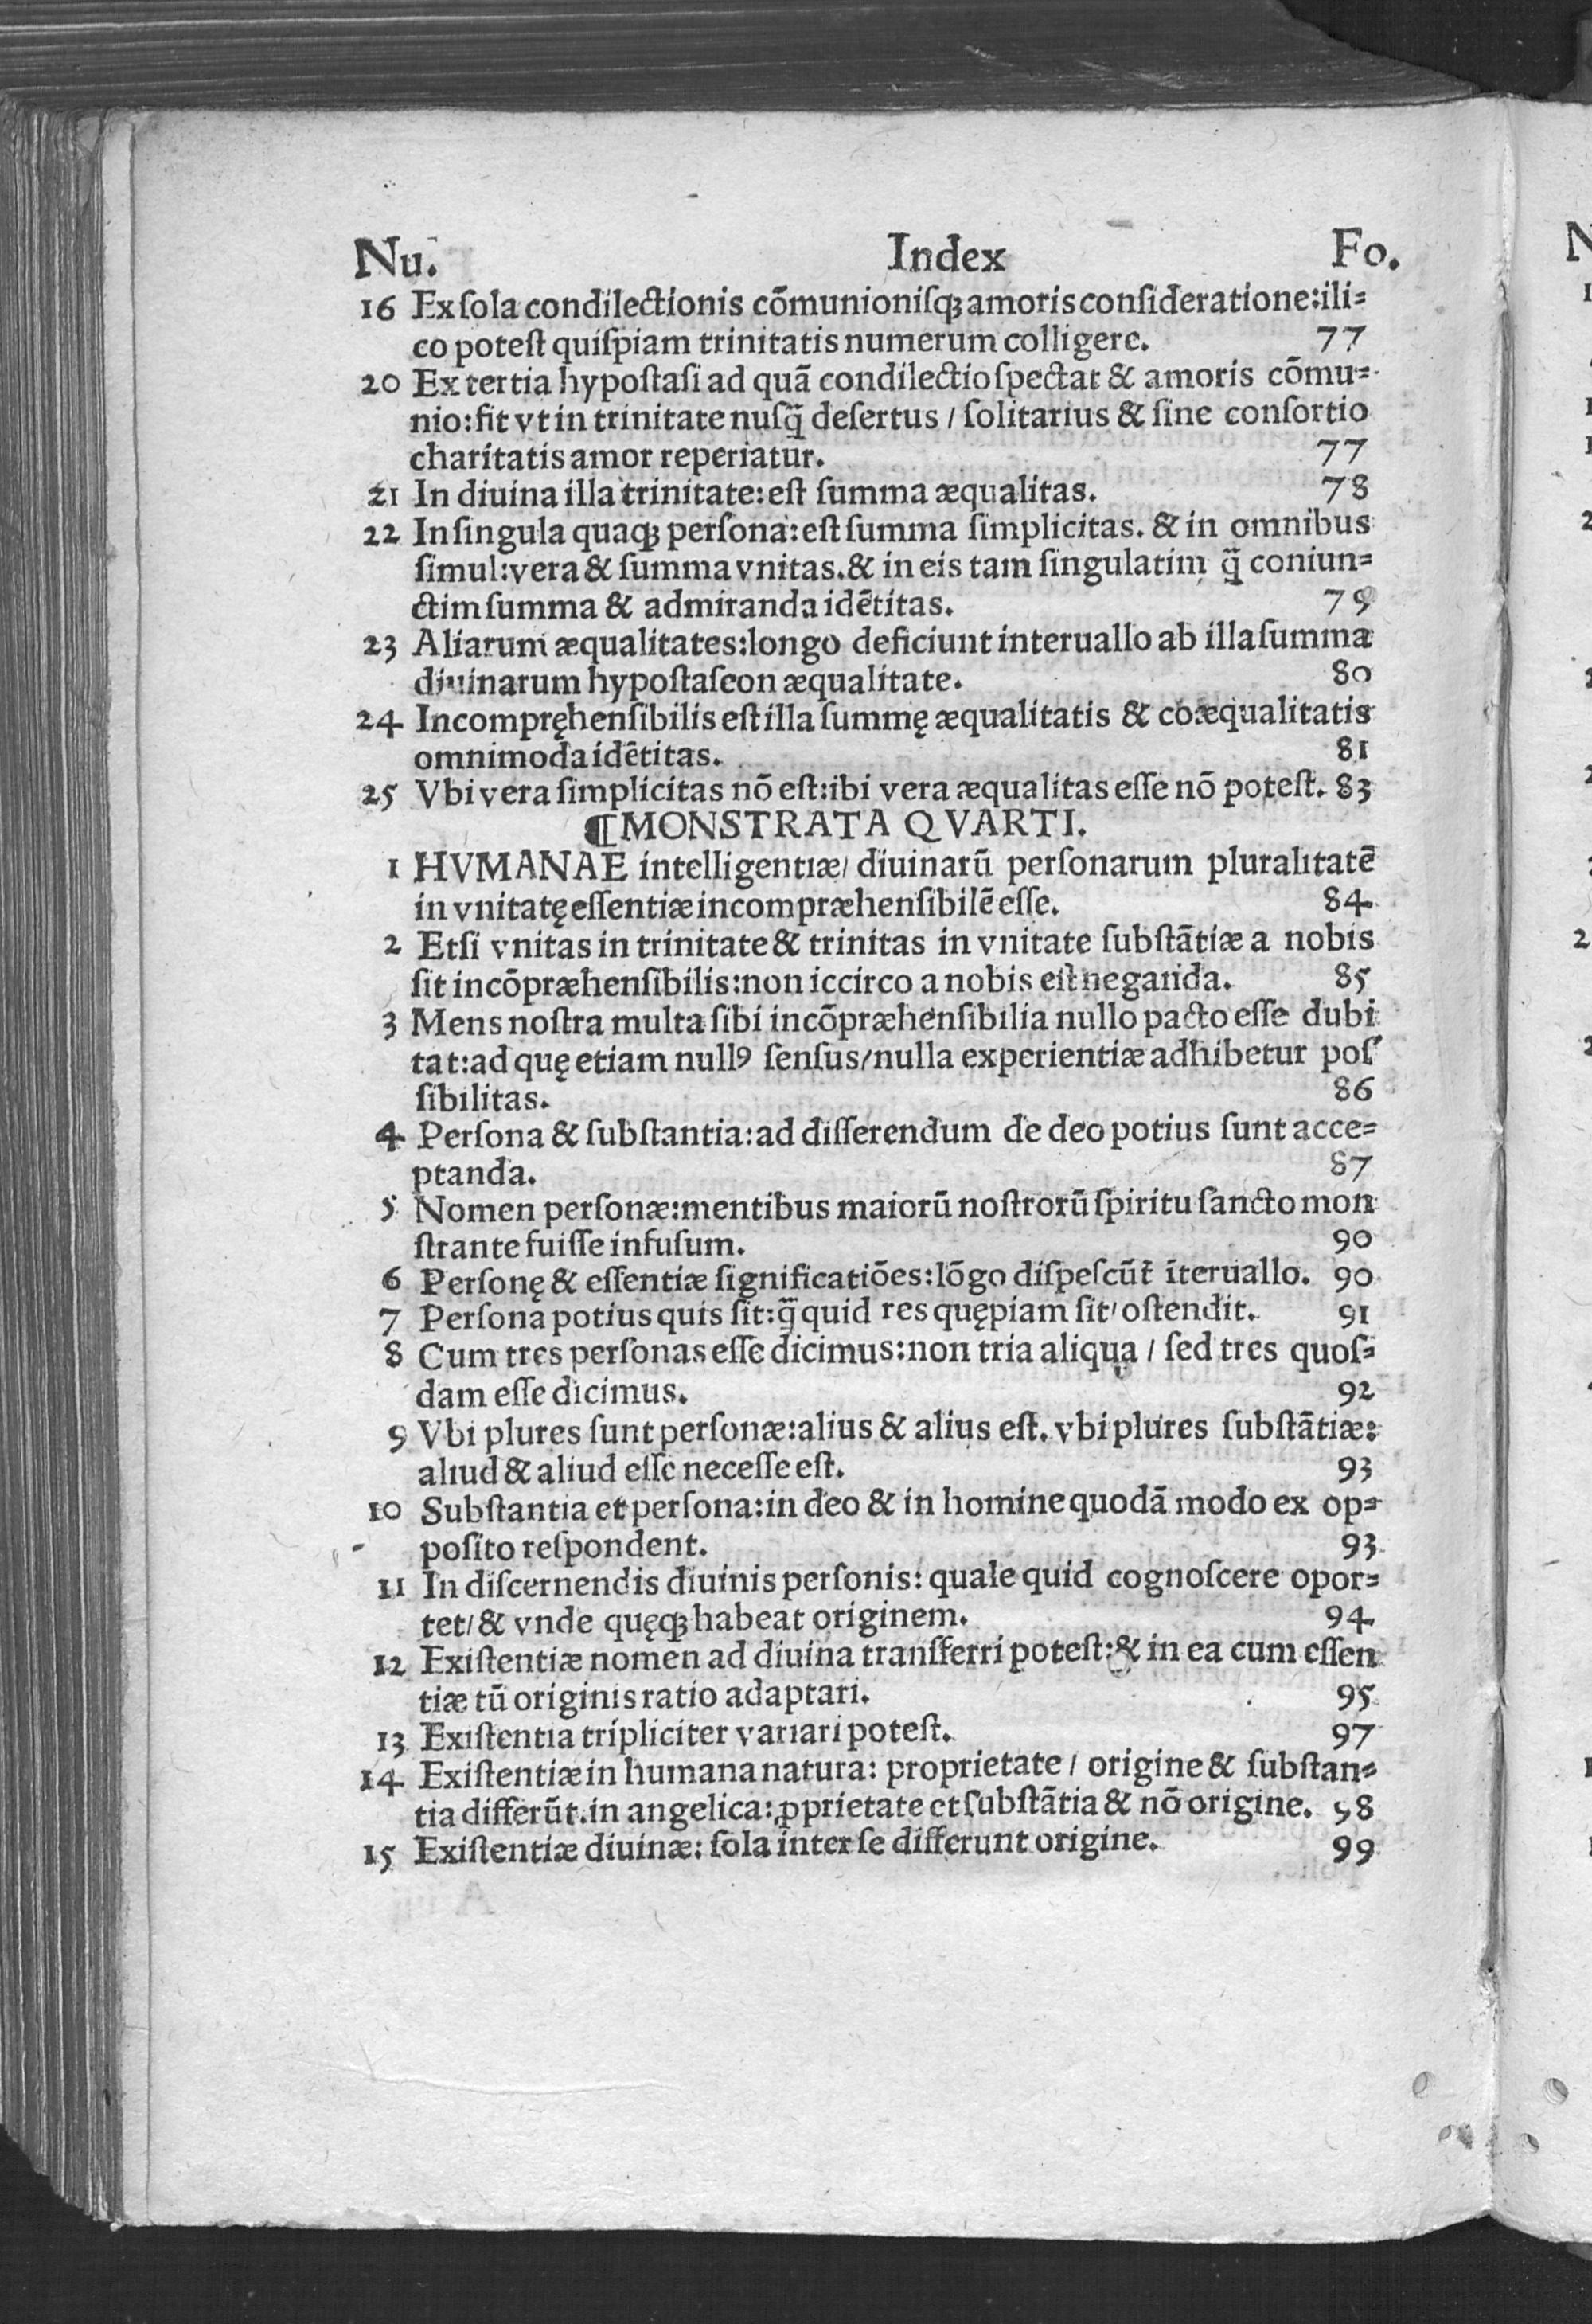 Nu. Index Fo.
16 Ex ſola condilectionis cōmunioniſqȝ amoris conſideratione:ili=
co poteſt quiſpiam trinitatis numerum colligere. 77
20 Ex tertia hypoſtaſi ad quā condilectio ſpectat & amoris cōmu=
nio:fit vt in trinitate nuſq̃ deſertus / ſolitarius & ſine conſortio
charitatis amor reperiatur. 77
21 In diuina illa trinitate:eſt ſumma æqualitas. 78
22 In ſingula quaqȝ perſona:eſt ſumma ſimplicitas. & in omnibus
ſimul:vera & ſumma vnitas.& in eis tam ſingulatim q̃ coniun=
ctim ſumma & admiranda idētitas. 79
23 Aliarum æqualitates:longo deficiunt interuallo ab illa ſumma
diuinarum hypoſtaſeon æqualitate. 80
24 Incompręhenſibilis eſt illa ſummę æqualitatis & coæqualitatis
omnimoda idētitas. 81
25 Vbi vera ſimplicitas nō eſt:ibi vera æqualitas eſſe nō poteſt. 83
¶MONSTRATA QVARTI.
1 HVMANAE intelligentiæ/ diuinarū perſonarum pluralitatē
in vnitatę eſſentiæ incompræhenſibilē eſſe. 84
2 Etſi vnitas in trinitate & trinitas in vnitate ſubſtātiæ a nobis
ſit incōpræhenſibilis:non iccirco a nobis eſt neganda. 85
3 Mens noſtra multa ſibi incōpræhenſibilia nullo pacto eſſe dubi
tat:ad quę etiam nullꝰ ſenſus/nulla experientiæ adhibetur poſ
ſibilitas. 86
4 Perſona & ſubſtantia:ad diſſerendum de deo potius ſunt acce=
ptanda. 87
5 Nomen perſonæ:mentibus maiorū noſtrorū ſpiritu ſancto mon
ſtrante fuiſſe infuſum. 90
6 Perſonę & eſſentiæ ſignificatiōes:lōgo diſpeſcūt īteruallo. 90
7 Perſona potius quis ſit:q̃ quid res quępiam ſit/ oſtendit. 91
8 Cum tres perſonas eſſe dicimus:non tria aliqua / ſed tres quoſ=
dam eſſe dicimus. 92
9 Vbi plures ſunt perſonæ:alius & alius eſt. vbi plures ſubſtātiæ:
aliud & aliud eſſe neceſſe eſt. 93
10 Subſtantia et perſona:in deo & in homine quodā modo ex op=
poſito reſpondent. 93
11 In diſcernendis diuinis perſonis: quale quid cognoſcere opor=
tet/ & vnde quęqȝ habeat originem. 94
12 Exiſtentiæ nomen ad diuina transferri poteſt:& in ea cum eſſen
tiæ tū originis ratio adaptari. 95
13 Exiſtentia tripliciter variari poteſt. 97
14 Exiſtentiæ in humana natura: proprietate / origine & ſubſtan=
tia differūt.in angelica: ꝓprietate et ſubſtātia & nō origine. 98
15 Exiſtentiæ diuinæ: ſola inter ſe differunt origine. 99